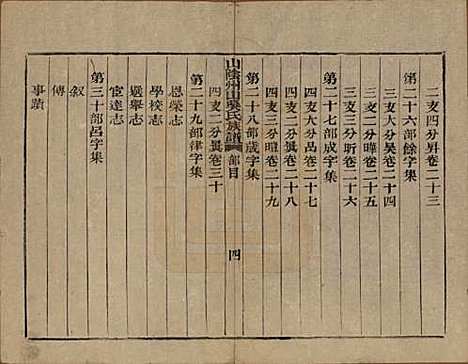 二支四分昇卷二十三
第二十六部餘字集
三支大分昊卷二十四
三支二分暐卷二十五
三支三分昕卷二十六
第二十七部成字集
四支大分晶卷二十七
四支二分 卷二十八
四支三分暄卷二十九
第二十八部歲字集
山陰州山吳氏族譜 部目 四
四支二分 卷三十
第二十九部律字集
恩榮志
學校志
選舉志
宦達志
第三十部呂字集
敘
傳
事蹟